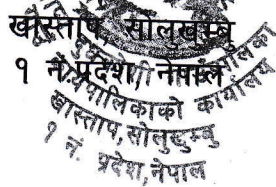 खास्ताप, सोलुखुम्बु
१ नं. प्रदेश, नेपाल
पालिकाको कार्यालय
खास्ताप, सोलुखुम्बु
१ नं. प्रदेश, नेपाल